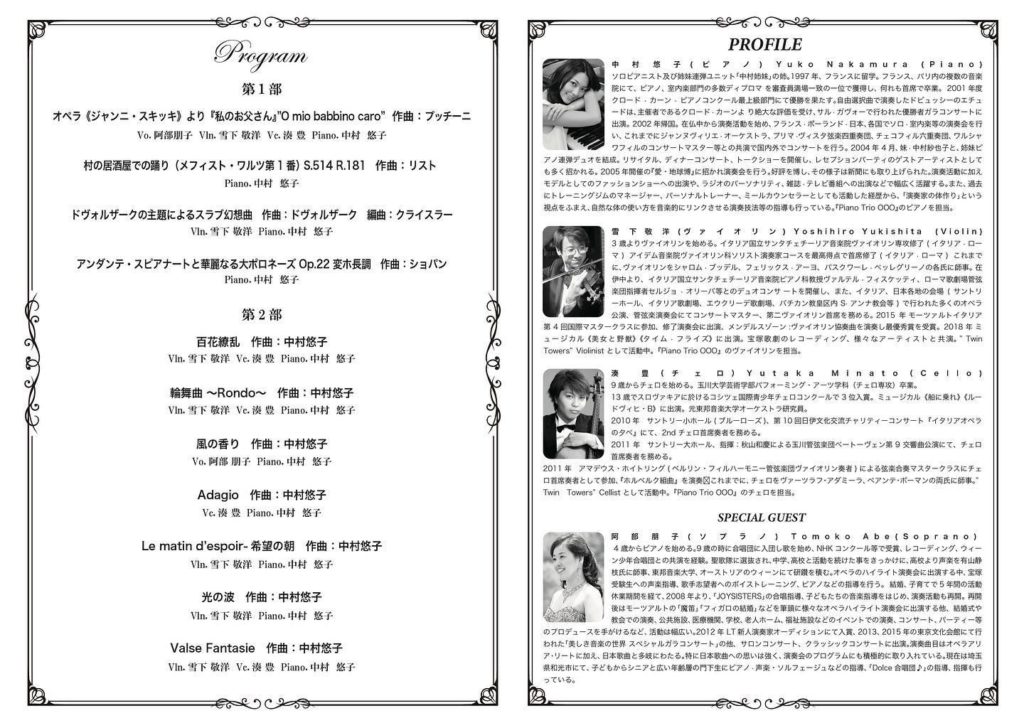 Program
第1部
オペラ《ジャンニ・スキッキ》より『私のお父さん』"O mio babbino caro" 作曲：プッチーニ
Vo. 阿部朋子 Vln. 雪下 敬洋 Vc. 湊 豊 Piano. 中村 悠子
村の居酒屋での踊り（メフィスト・ワルツ第1番）S.514 R.181 作曲：リスト
Piano. 中村 悠子
ドヴォルザークの主題によるスラブ幻想曲 作曲：ドヴォルザーク 編曲：クライスラー
Vln. 雪下 敬洋 Piano. 中村 悠子
アンダンテ・スピアナートと華麗なる大ポロネーズ Op.22 変ホ長調 作曲：ショパン
Piano. 中村 悠子
第2部
百花繚乱 作曲：中村悠子
Vln. 雪下 敬洋 Vc. 湊 豊 Piano. 中村 悠子
輪舞曲 〜Rondo〜 作曲：中村悠子
Vln. 雪下 敬洋 Vc. 湊 豊 Piano. 中村 悠子
風の香り 作曲：中村悠子
Vo. 阿部 朋子 Piano. 中村 悠子
Adagio 作曲：中村悠子
Vc. 湊 豊 Piano. 中村 悠子
Le matin d'espoir- 希望の朝 作曲：中村悠子
Vln. 雪下 敬洋 Piano. 中村 悠子
光の波 作曲：中村悠子
Vln. 雪下 敬洋 Piano. 中村 悠子
Valse Fantasie 作曲：中村悠子
Vln. 雪下 敬洋 Vc. 湊 豊 Piano. 中村 悠子
PROFILE
中村悠子(ピアノ) Yuko Nakamura (Piano)
ソロピアニスト及び姉妹連弾ユニット「中村姉妹」の姉。1997年、フランスに留学。フランス、パリ内の複数の音楽
院にて、ピアノ、室内楽部門の多数ディプロマ を審査員満場一致の一位で獲得し、何れも首席で卒業。2001年度
クロード・カーン・ピアノコンクール最上級部門にて優勝を果たす。自由選択曲で演奏したドビュッシーのエチュ
ードは、主催者であるクロード・カーンより絶大な評価を受け、サル・ガヴォーで行われた優勝者ガラコンサート
に出演。2002年帰国。在仏中から演奏活動を始め、フランス・ポーランド・日本、各国でソロ・室内楽等の演奏会を行
い、これまでにジャンヌヴィリエ・オーケストラ、プリマ・ヴィスタ弦楽四重奏団、チェコフィル六重奏団、ワルシャ
ワフィルのコンサートマスター等との共演で国内外でコンサートを行う。2004年4月、妹・中村紗也子と、姉妹ピ
アノ連弾デュオを結成。リサイタル、ディナーコンサート、トークショーを開催し、レセプションパーティのゲストアーティストとして
も多く招かれる。2005年開催の『愛・地球博』に招かれ演奏会を行う。好評を博し、その様子は新聞にも取り上げられた。演奏活動に加え
モデルとしてのファッションショーへの出演や、ラジオのパーソナリティ、雑誌・テレビ番組への出演などで幅広く活躍する。また、過去
にトレーニングジムのマネージャー、パーソナルトレーナー、ミールカウンセラーとしても活動した経歴から、「演奏家の体作り」という
視点をふまえ、自然な体の使い方を音楽的にリンクさせる演奏技法等の指導も行っている。『Piano Trio OOO』のピアノを担当。
雪下敬洋(ヴァイオリン) Yoshihiro Yukishita (Violin)
3歳よりヴァイオリンを始める。イタリア国立サンタチェチーリア音楽院ヴァイオリン専攻修了(イタリア・ロー
マ) アイデム音楽院ヴァイオリン科ソリスト演奏家コースを最高得点で首席修了(イタリア・ローマ) これまで
に、ヴァイオリンをシャロム・ブッデル、フェリックス・アーヨ、パスクワーレ・ペッレグリーノの各氏に師事。在
伊中より、イタリア国立サンタチェチーリア音楽院ピアノ科教授ヴァルテル・フィスケッティ、ローマ歌劇場管弦
楽団指揮者セルジョ・オリーバ等とのデュオコンサートを開催し、また、イタリア、日本各地の会場(サントリ
ーホール、イタリア歌劇場、エウクリーデ歌劇場、バチカン教皇区内S・アンナ教会等)で行われた多くのオペラ
公演、管弦楽演奏会にてコンサートマスター、第二ヴァイオリン首席を務める。2015年モーツァルトイタリア
第4回国際マスタークラスに参加、修了演奏会に出演、メンデルスゾーン:ヴァイオリン協奏曲を演奏し最優秀賞を受賞。2018年ミ
ュージカル《美女と野獣》《タイム・フライズ》に出演。宝塚歌劇のレコーディング、様々なアーティストと共演。"Twin
Towers" Violinist として活動中。『Piano Trio OOO』のヴァイオリンを担当。
湊豊(チェロ) Yutaka Minato (Cello)
9歳からチェロを始める。玉川大学芸術学部パフォーミング・アーツ学科（チェロ専攻）卒業。
13歳でスロヴァキアに於けるコシツェ国際青少年チェロコンクールで3位入賞。ミュージカル《船に乗れ》《ルー
ドヴィヒ・B》に出演。元東邦音楽大学オーケストラ研究員。
2010年 サントリー小ホール(ブルーローズ)、第10回日伊文化交流チャリティーコンサート『イタリアオペラ
の夕べ』にて、2ndチェロ首席奏者を務める。
2011年 サントリー大ホール、指揮：秋山和慶による玉川管弦楽団ベートーヴェン第9交響曲公演にて、チェロ
首席奏者を務める。
2011年 アマデウス・ホイトリング(ベルリン・フィルハーモニー管弦楽団ヴァイオリン奏者)による弦楽合奏マスタークラスにチェ
ロ首席奏者として参加、『ホルベルク組曲』を演奏☒これまでに、チェロをヴァーツラフ・アダミーラ、ベアンテ・ボーマンの両氏に師事。"
Twin Towers" Cellist として活動中。『Piano Trio OOO』のチェロを担当。
SPECIAL GUEST
阿部朋子(ソプラノ) Tomoko Abe(Soprano)
4歳からピアノを始める。9歳の時に合唱団に入団し歌を始め、NHKコンクール等で受賞、レコーディング、ウィー
ン少年合唱団との共演を経験。聖歌隊に選抜され、中学、高校と活動を続けた事をきっかけに、高校より声楽を有山静
枝氏に師事、東邦音楽大学、オーストリアのウィーンにて研鑽を積む。オペラのハイライト演奏会に出演する中、宝塚
受験生への声楽指導、歌手志望者へのボイストレーニング、ピアノなどの指導を行う。結婚、子育てで5年間の活動
休業期間を経て、2008年より、「JOYSISTERS」の合唱指導、子どもたちの音楽指導をはじめ、演奏活動も再開。再開
後はモーツアルトの「魔笛」「フィガロの結婚」などを筆頭に様々なオペラハイライト演奏会に出演する他、結婚式や
教会での演奏、公共施設、医療機関、学校、老人ホーム、福祉施設などのイベントでの演奏、コンサート、パーティー等
のプロデュースを手がけるなど、活動は幅広い。2012年LT新人演奏家オーディションにて入賞、2013、2015年の東京文化会館にて行
われた「美しき音楽の世界 スペシャルガラコンサート」の他、サロンコンサート、クラッシックコンサートに出演。演奏曲目はオペラアリ
ア・リートに加え、日本歌曲と多岐にわたる。特に日本歌曲への思いは強く、演奏会のプログラムにも積極的に取り入れている。現在は埼玉
県和光市にて、子どもからシニアと広い年齢層の門下生にピアノ・声楽・ソルフェージュなどの指導、「Dolce合唱団♪」の指導、指揮も行
っている。